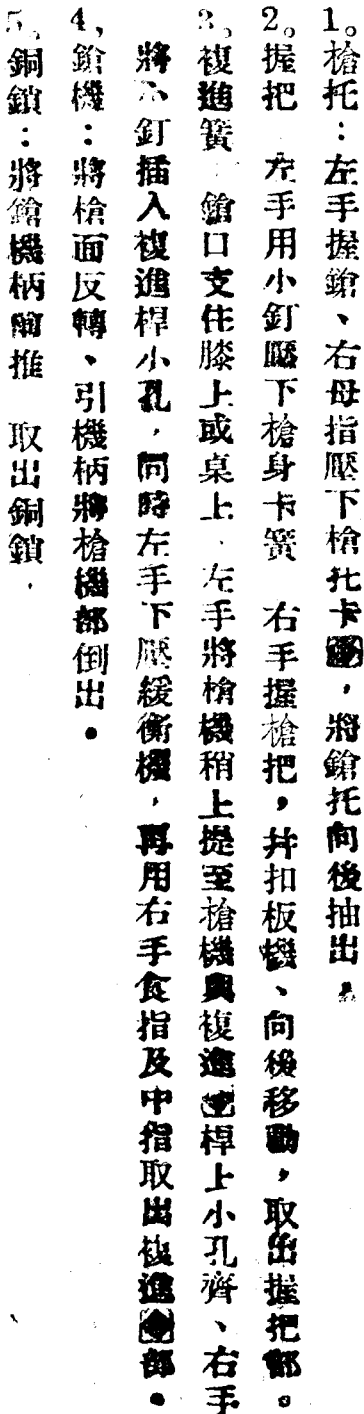 1。槍托：左手握鎗、右母指壓下槍托卡，將鎗托向後抽出
2。握把 左手用小釘壓下槍身卡簧 右手握槍把，幷扣板機、向後移動，取出握把部。
3、複進簧 鎗口支住膝上或桌上 左手將槍機稍上提至槍機與複進桿上小孔齊、右手
將小釘插入複進桿小孔，同時左手下壓緩衝機，再用右手食指及中指取出複進部。
4、鎗機：將槍面反轉、引機柄將槍機部倒出。
5。銅鎖：將鎗機柄前推 取出銅鎖，